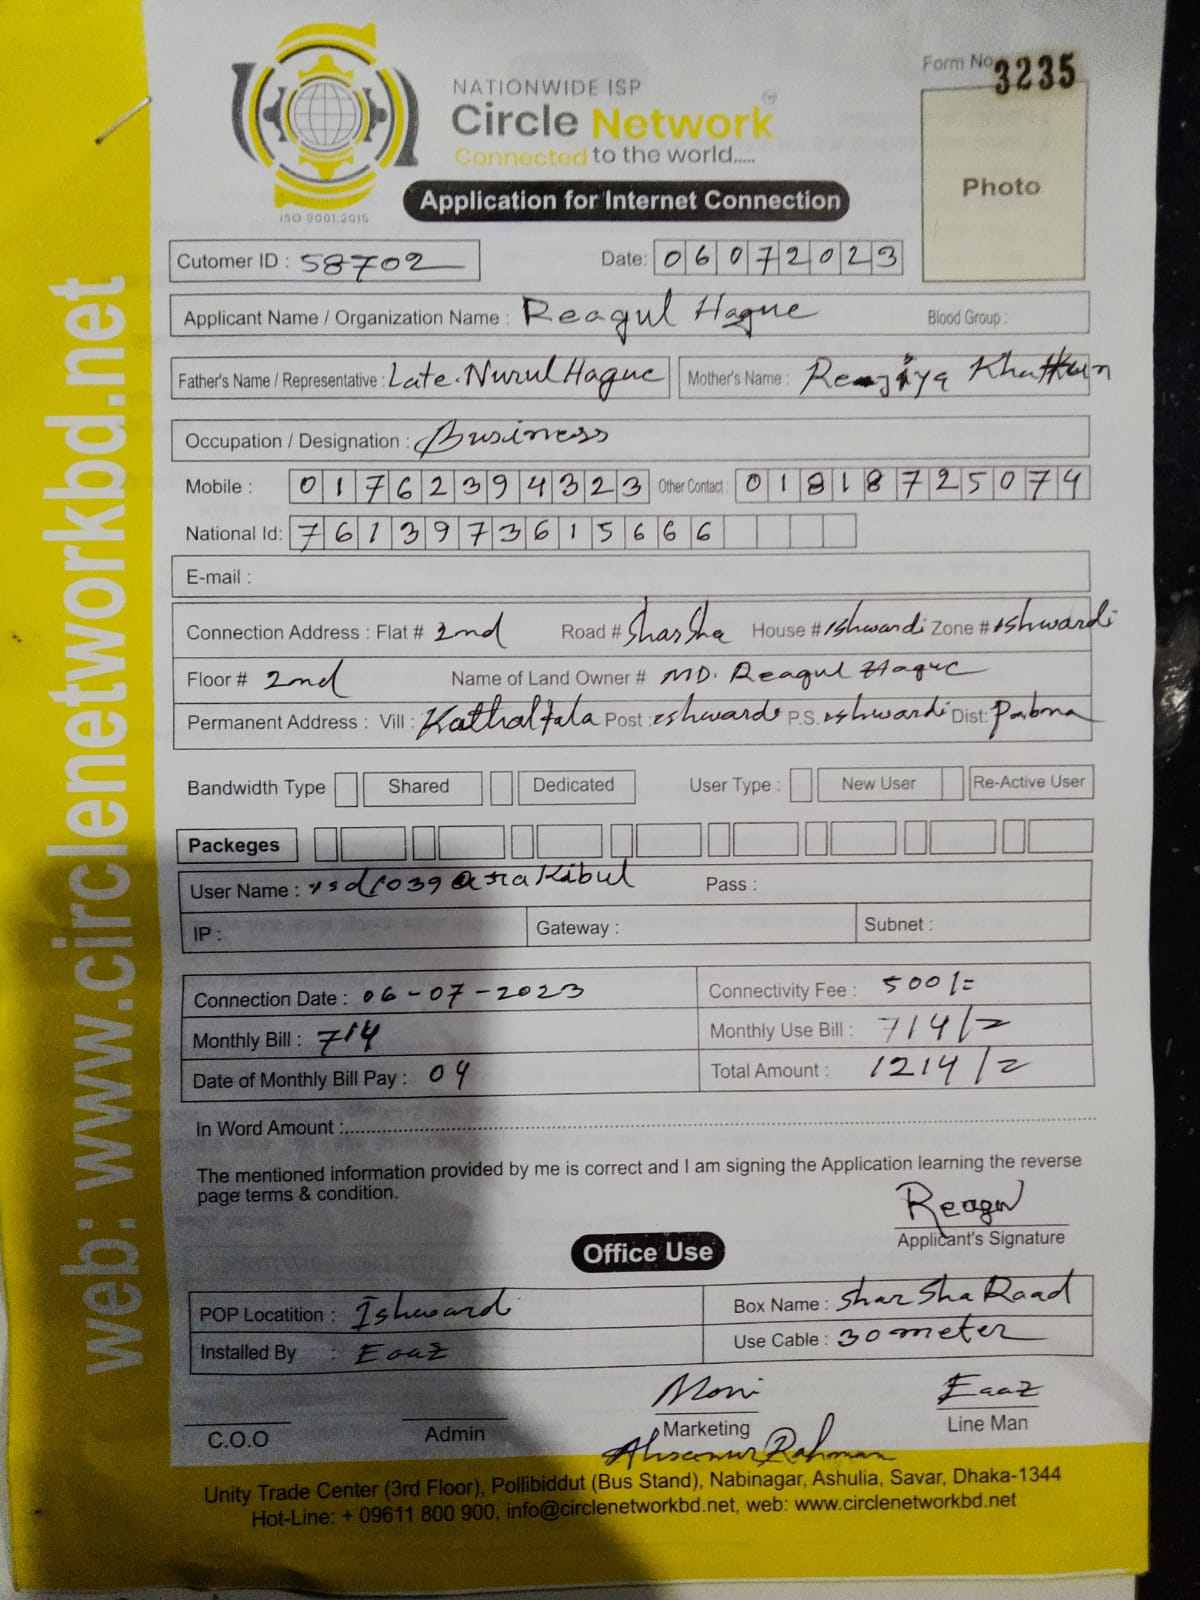 Form No. 3235
NATIONWIDE ISP
Circle Network
Connected to the world.....
ISO 9001:2015
Application for Internet Connection
Photo
Cutomer ID : 58702
Date: 06072023
Applicant Name / Organization Name : Reagul Haque Blood Group :
Father's Name / Representative : Late. Nurul Haque Mother's Name : Khattun
Occupation / Designation : Business
Mobile : 01762394323 Other Contact : 01818725074
National Id: 7613973615666
E-mail :
Connection Address : Flat # 2nd Road # SharSha House # ishwardi Zone # ishwardi
Floor # 2nd Name of Land Owner # MD. Reagul Haque
Permanent Address : Vill : Kathaltala Post : eshwardi P.S. ishwardi Dist: Pabna
Bandwidth Type Shared Dedicated User Type : New User Re-Active User
Packeges
User Name : Pass :
IP : Gateway : Subnet :
Connection Date : 06-07-2023 Connectivity Fee : 500/=
Monthly Bill : 714 Monthly Use Bill : 714/=
Date of Monthly Bill Pay : 04 Total Amount : 1214/=
In Word Amount :
The mentioned information provided by me is correct and I am signing the Application learning the reverse
page terms & condition.
Reagul
Applicant's Signature
Office Use
POP Locatition : Ishwardi Box Name : SharSha Road
Installed By : Eaaz Use Cable : 30 meter
Moni Eaaz
C.O.O Admin Marketing Line Man
Ahsanur Rahman
Unity Trade Center (3rd Floor), Pollibiddut (Bus Stand), Nabinagar, Ashulia, Savar, Dhaka-1344
Hot-Line: + 09611 800 900, info@circlenetworkbd.net, web: www.circlenetworkbd.net
web: www.circlenetworkbd.net